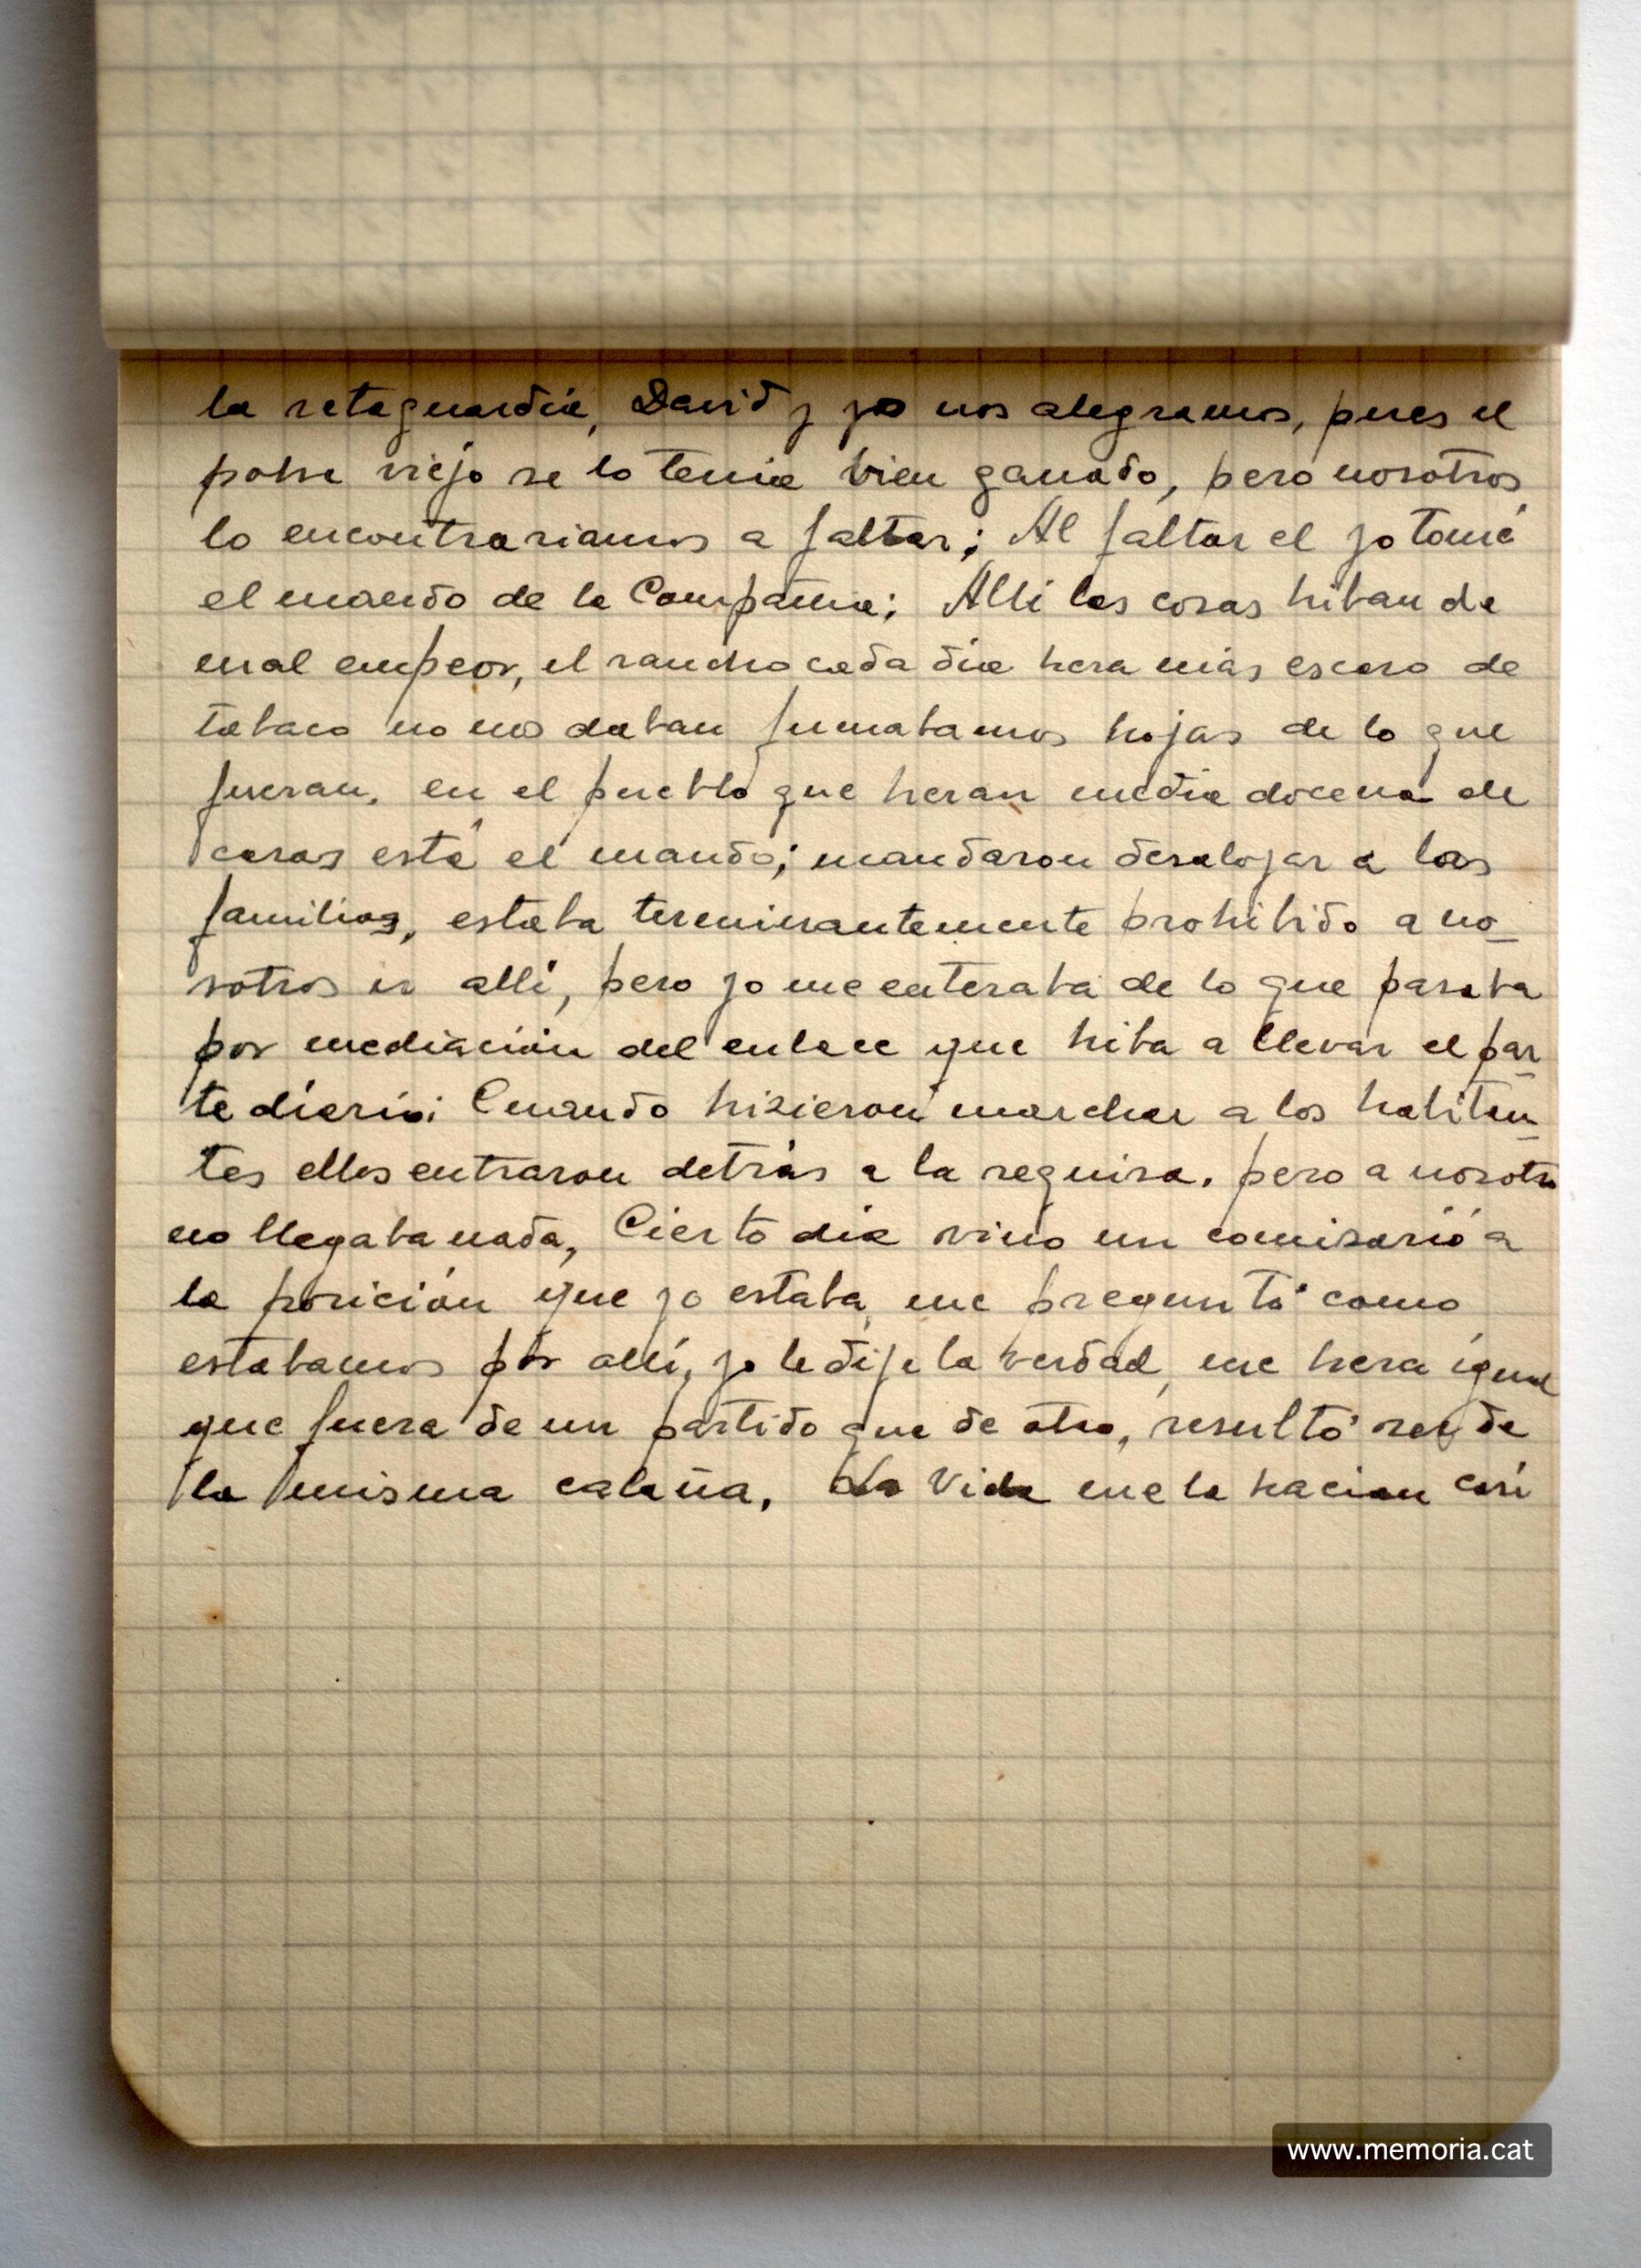 la retaguardia, David y yo nos alegramos, pues el
pobre viejo se lo tenia bien ganado, pero nosotros
lo encontrariamos a faltar; Al faltar el yo tomé
el mando de la Compañia; Alli las cosas hiban de
mal empeor, el rancho cada dia hera más escaso de
tabaco no nos daban fumabamos hojas de lo que
fueran, en el pueblo que heran media docena de
casas está el mando; mandaron desalojar a las
familias, estaba terminantemente prohibido a no_
sotros ir allí, pero yo me enteraba de lo que pasaba
por mediación del enlace que hiba a llevar el par_
te diario; Cuando hizieron marchar a los habitan_
tes ellos entraron detrás a la requisa. pero a nosotros
no llegaba nada, Cierto dia vino un comisario a
la posición que yo estaba, me preguntó como
estabamos por allí, yo le dije la verdad, me hera igual
que fuera de un partido que de otro, resultó ser de
la misma calaña, La Vida me la hacian casi
www.memoria.cat